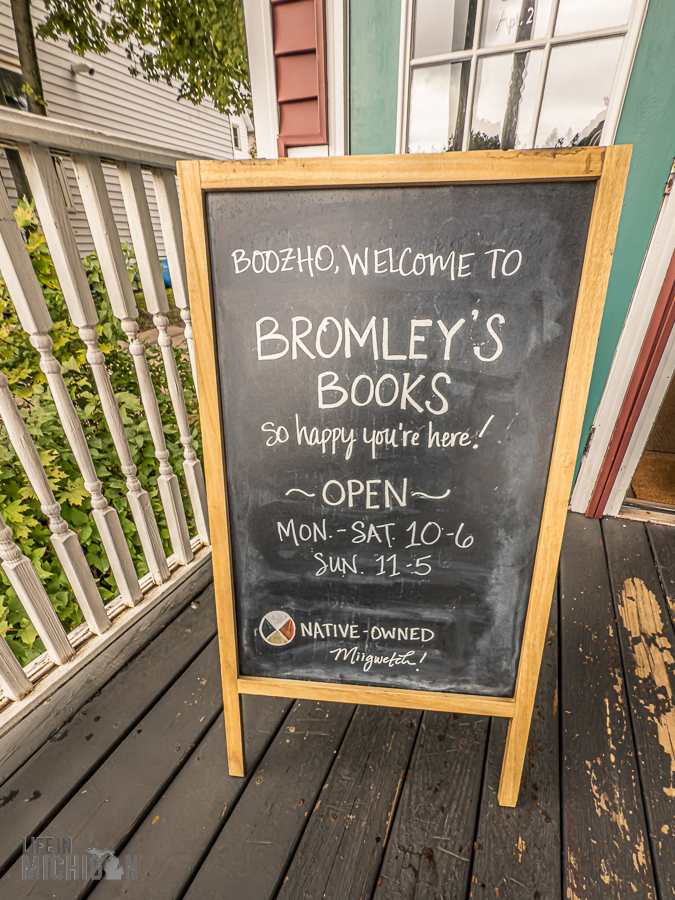 Apt. 2
BOOZHO, WELCOME TO
BROMLEY'S
BOOKS
So happy you're here!
~OPEN~
MON.-SAT. 10-6
SUN. 11-5
NATIVE-OWNED
Miigwetch!
LIFE IN
MICHIGAN